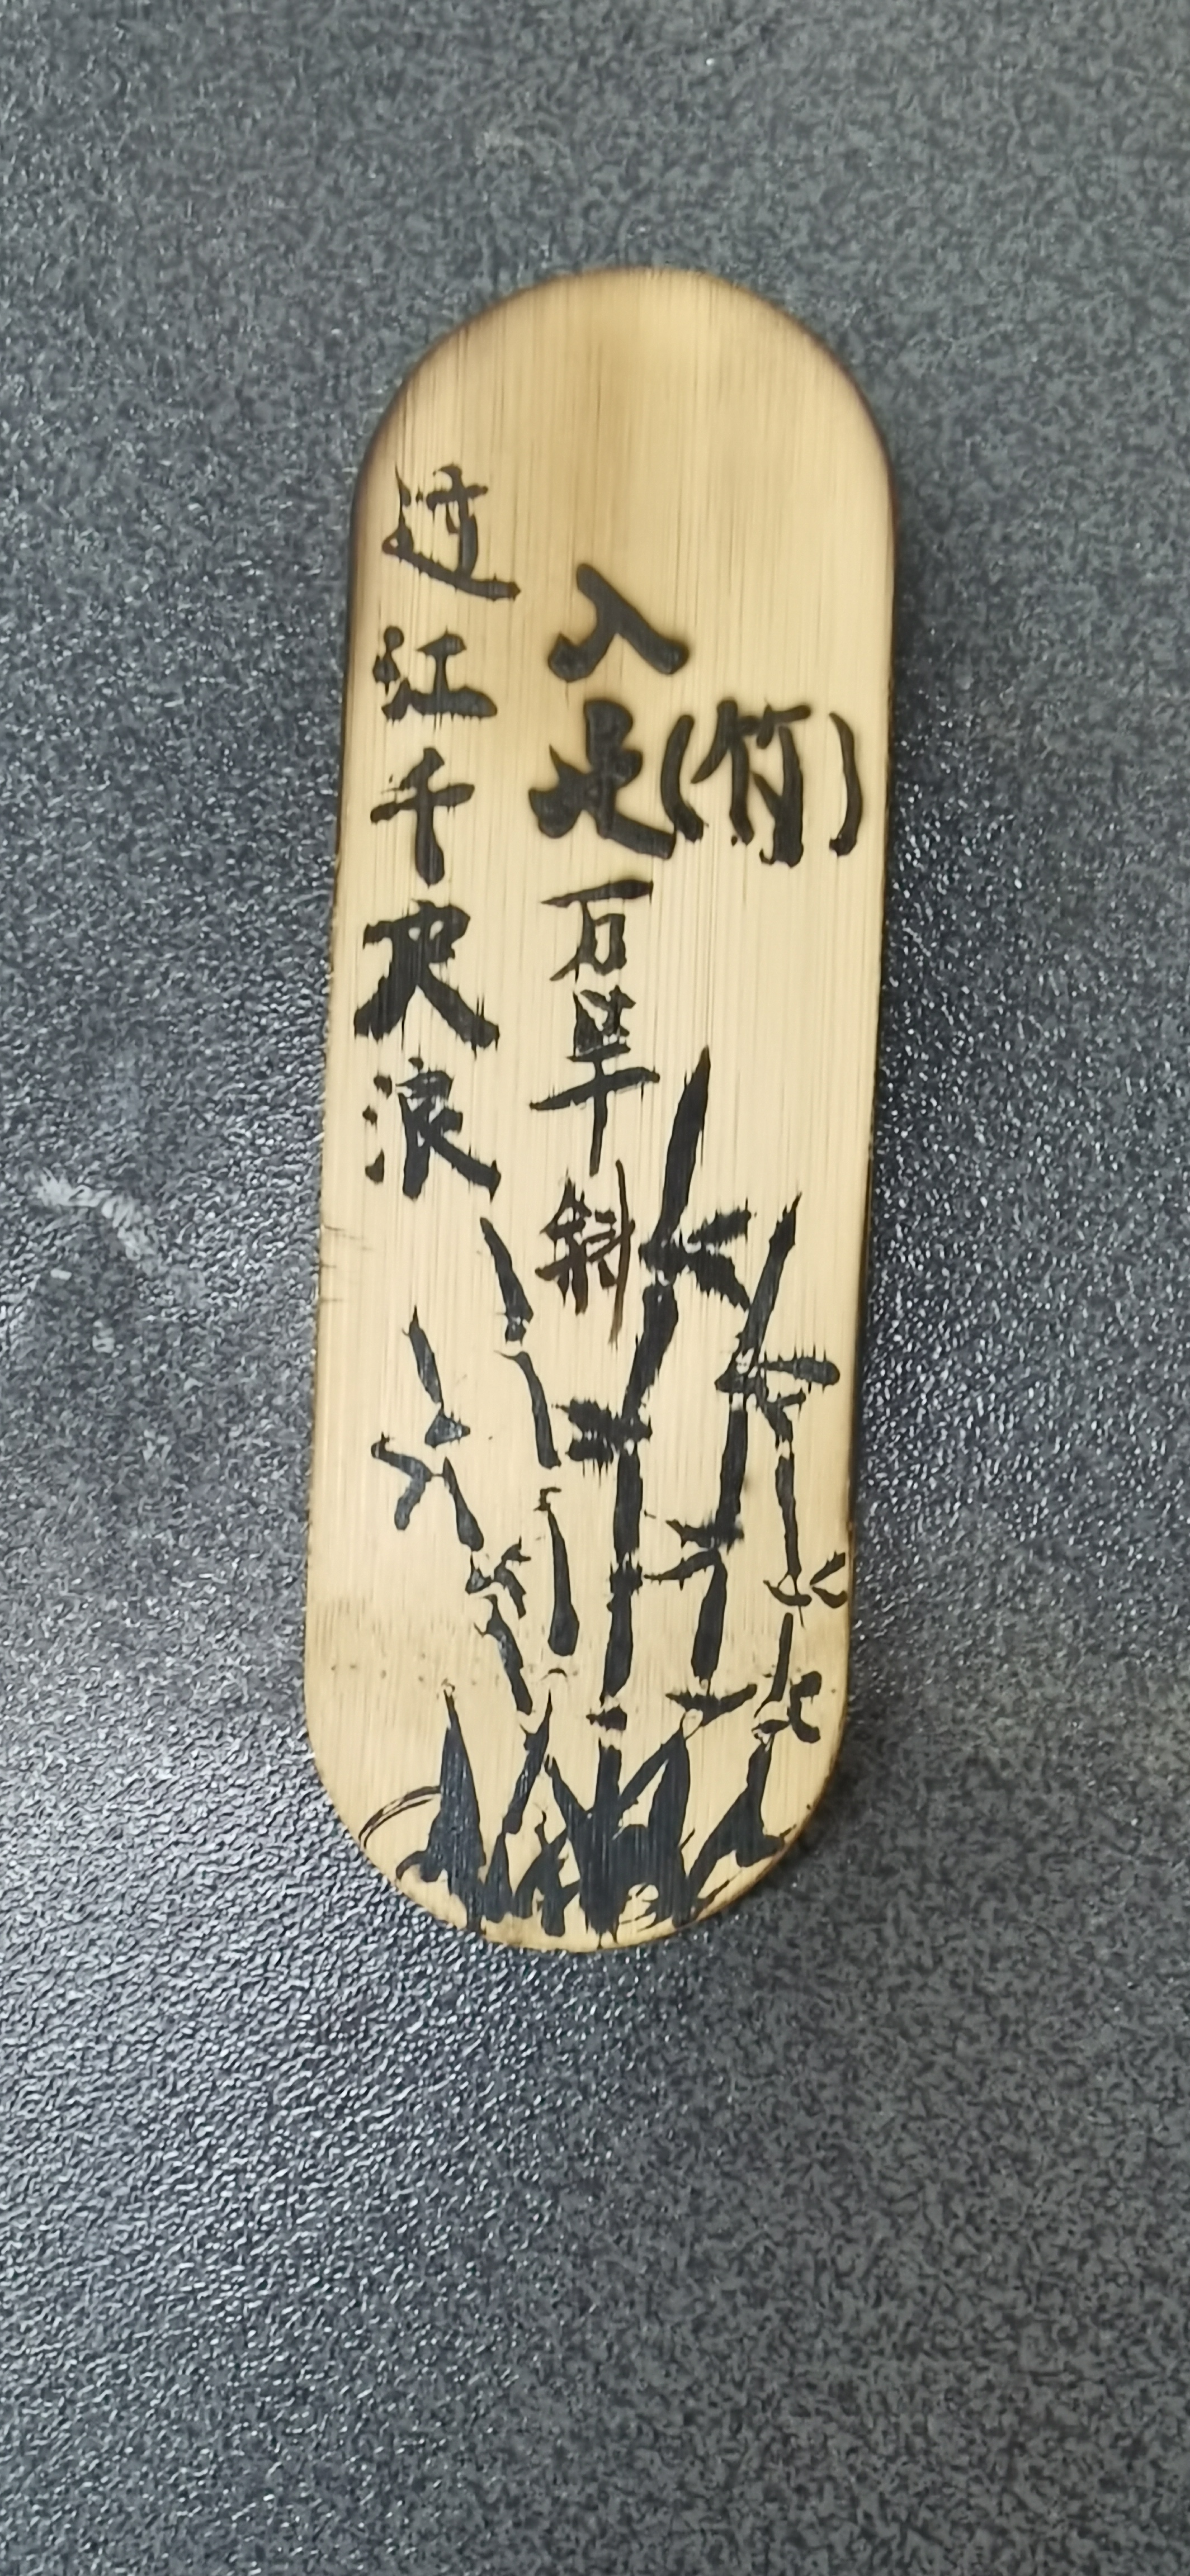 过江千尺浪
入(竹)万竿斜